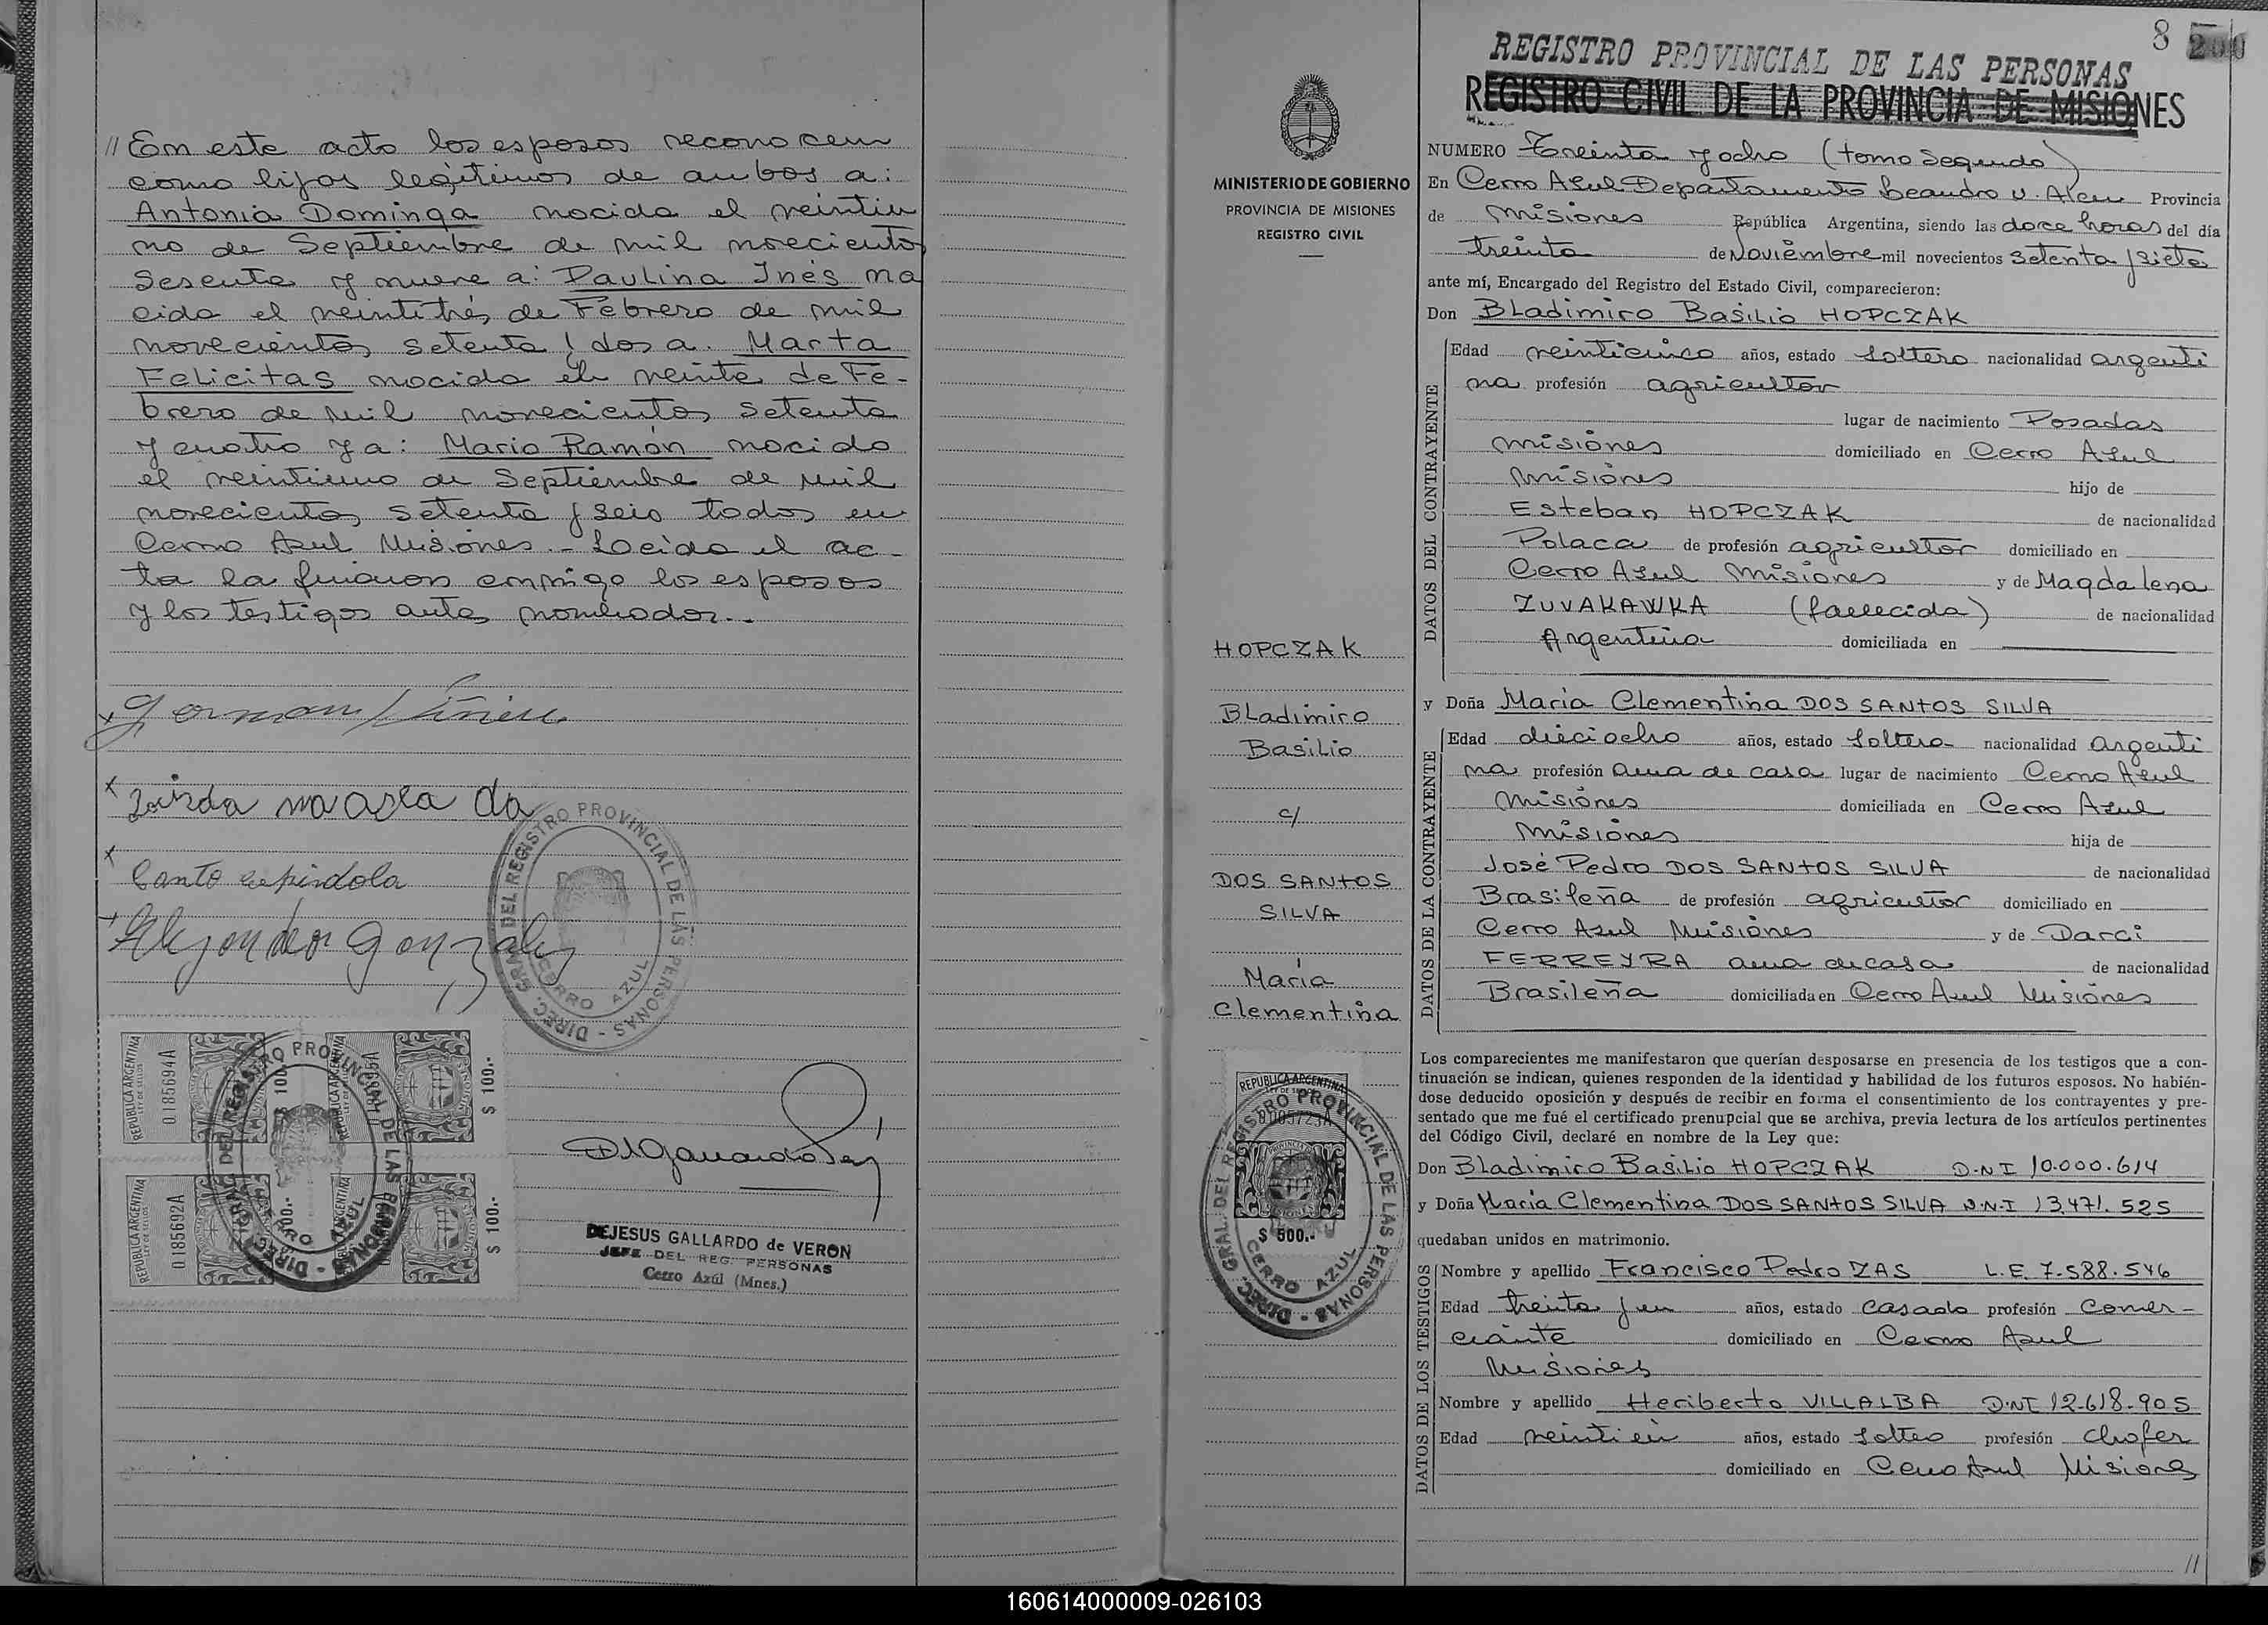 // En este acto los esposos reconocen
como hijos legítimos de ambos a:
Antonia Dominga nacida el veintiu
no de Septiembre de mil novecientos
Sesenta y nueve a: Paulina Inés na
cida el veintitrés de Febrero de mil
novecientos setenta y dos a. Marta
Felicitas nacida el veinte de Fe-
brero de mil novecientos setenta
y cuatro y a: Mario Ramón nacido
el veintiuno de Septiembre de mil
novecientos setenta y seis todos en
Cerro Azul Misiones.- Leida el ac-
ta la firman conmigo los esposos
y los testigos antes nombrados.-
x German
x
x Canto espindola
Alejandro Gonzalez
DIREC. GRAL. DEL REGISTRO PROVINCIAL DE LAS PERSONAS - CERRO AZUL
REPUBLICA ARGENTINA
0185694A
$ 100.-
$ 100.-
REPUBLICA ARGENTINA
0185692A
$ 100.-
DEJESUS GALLARDO de VERON
JEFE DEL REG. PERSONAS
Cerro Azúl (Mnes.)
8 200
REGISTRO PROVINCIAL DE LAS PERSONAS
REGISTRO CIVIL DE LA PROVINCIA DE MISIONES
MINISTERIO DE GOBIERNO
PROVINCIA DE MISIONES
REGISTRO CIVIL
HOPCZAK
Bladimiro
Basilio
c/
DOS SANTOS
SILVA
María
Clementina
REPUBLICA ARGENTINA
$ 500.-
DIREC. GRAL. DEL REGISTRO PROVINCIAL DE LAS PERSONAS - CERRO AZUL
NUMERO Treinta y ocho (tomo Segundo)
En Cerro Azul Departamento Leandro N. Alem Provincia
de Misiones República Argentina, siendo las doce horas del día
treinta de Noviembre mil novecientos setenta y siete
ante mí, Encargado del Registro del Estado Civil, comparecieron:
Don Bladimiro Basilio HOPCZAK
DATOS DEL CONTRAYENTE
Edad veinticinco años, estado Soltero nacionalidad argenti
na profesión agricultor
lugar de nacimiento Posadas
Misiones domiciliado en Cerro Azul
Misiones hijo de
Esteban HOPCZAK de nacionalidad
Polaca de profesión agricultor domiciliado en
Cerro Azul Misiones y de Magdalena
ZUVAKAWKA (fallecida) de nacionalidad
Argentina domiciliada en
y Doña María Clementina DOS SANTOS SILVA
DATOS DE LA CONTRAYENTE
Edad dieciocho años, estado Soltera nacionalidad argenti
na profesión ama de casa lugar de nacimiento Cerro Azul
Misiones domiciliada en Cerro Azul
Misiones hija de
José Pedro DOS SANTOS SILVA de nacionalidad
Brasileña de profesión agricultor domiciliado en
Cerro Azul Misiones y de Darci
FERREYRA ama de casa de nacionalidad
Brasileña domiciliada en Cerro Azul Misiones
Los comparecientes me manifestaron que querían desposarse en presencia de los testigos que a con-
tinuación se indican, quienes responden de la identidad y habilidad de los futuros esposos. No habién-
dose deducido oposición y después de recibir en forma el consentimiento de los contrayentes y pre-
sentado que me fué el certificado prenupcial que se archiva, previa lectura de los artículos pertinentes
del Código Civil, declaré en nombre de la Ley que:
Don Bladimiro Basilio HOPCZAK D.N.I 10.000.614
y Doña María Clementina DOS SANTOS SILVA D.N.I 13.471.525
quedaban unidos en matrimonio.
DATOS DE LOS TESTIGOS
Nombre y apellido Francisco Pedro ZAS L.E. 7.588.546
Edad treinta y un años, estado casado profesión Comer-
ciante domiciliado en Cerro Azul
Misiones
Nombre y apellido Heriberto VILLALBA D.NI 12.618.905
Edad veintiún años, estado Soltero profesión chofer
domiciliado en Cerro Azul Misiones
//
160614000009-026103